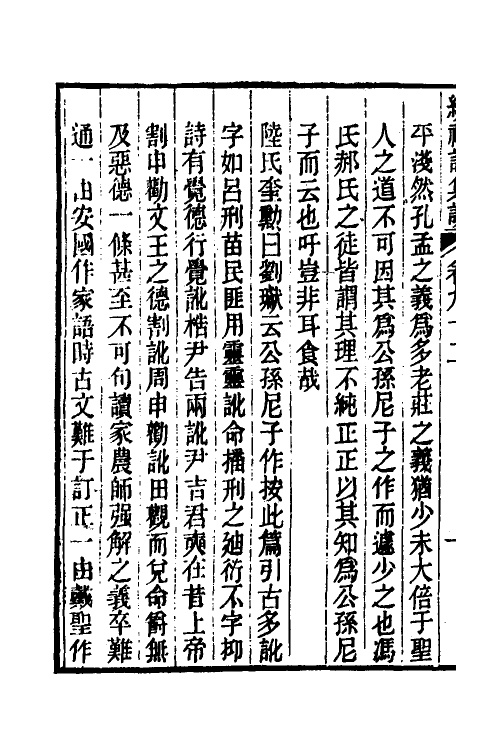 續禮記集說 卷九十二 一
平淺然孔孟之義爲多老莊之義猶少未大倍于聖
人之道不可因其爲公孫尼子之作而遽少之也馮
氏郝氏之徒皆謂其理不純正正以其知爲公孫尼
子而云也吁豈非耳食哉
陸氏奎勳曰劉瓛云公孫尼子作按此篇引古多訛
字如呂刑苗民匪用靈靈訛命播刑之廸衍不字抑
詩有覺德行覺訛梏尹告兩訛尹吉君奭在昔上帝
割申勸文王之德割訛周申勸訛田觀而兌命爵無
及惡德一條甚至不可句讀家農師强解之義卒難
通一由安國作家語時古文難于訂正一由戴聖作